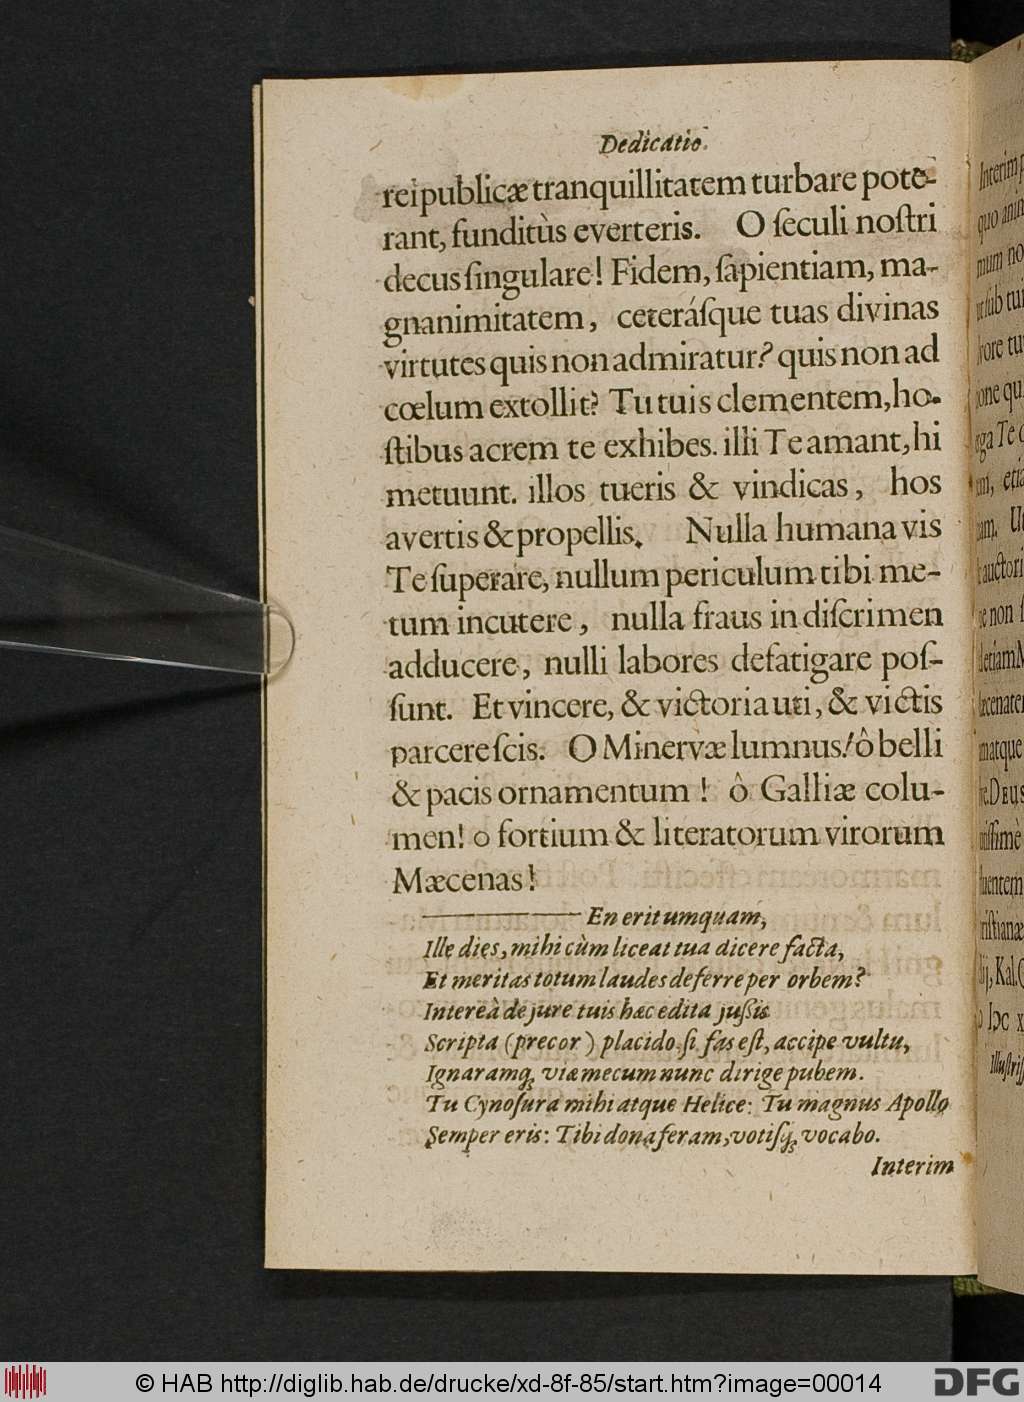 Dedicatio.
reipublicæ tranquillitatem turbare pote-
rant, funditùs everteris. O ſeculi noſtri
decus ſingulare! Fidem, ſapientiam, ma-
gnanimitatem, ceteráſque tuas divinas
virtutes quis non admiratur? quis non ad
cœlum extollit? Tu tuis clementem, ho-
ſtibus acrem te exhibes. illi Te amant, hi
metuunt. illos tueris & vindicas, hos
avertis & propellis. Nulla humana vis
Te ſuperare, nullum periculum tibi me-
tum incutere, nulla fraus in diſcrimen
adducere, nulli labores defatigare poſ-
ſunt. Et vincere, & victoria uti, & victis
parcere ſcis. O Minervæ lumnus! ô belli
& pacis ornamentum! ô Galliæ colu-
men! o fortium & literatorum virorum
Mæcenas!
En erit umquam,
Ille dies, mihi cùm liceat tua dicere facta,
Et meritas totum laudes deferre per orbem?
Intereà de jure tuis hæc edita juſſis
Scripta (precor) placido ſi fas eſt, accipe vultu,
Ignaramq; viæ mecum nunc dirige pubem.
Tu Cynoſura mihi atque Helice: Tu magnus Apollo
Semper eris: Tibi dona feram, votiſq; vocabo.
Interim
Interim
quo
mum no
ſub
vore tu
Te
etia
auctori
non
etiam
matque
DEUS
Kal.
© HAB http://diglib.hab.de/drucke/xd-8f-85/start.htm?image=00014
DFG